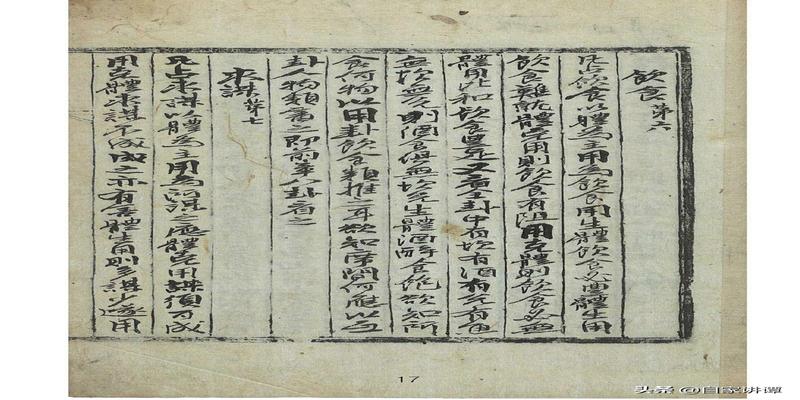 飲食第六
凡占飲食以體為主用為飲食用生體飲食必豊體生用
飲食難就體克用則飲食有阻用克體則飲食必無
體用比和飲食豊足又看全卦中有坎有酒有兌有食
無坎無兌則酒食俱無坎兌生體酒醉食飽欲知所
食何物以用卦飲食類推之耳欲知席間何應以互
卦人物類之即前章八卦看之
求謀第七
凡占求謀以體為主用為所謀之應體克用謀須可成
用克體求謀不成成之亦有害體生用則多謀少遂用
17
头条 @自家讲谭